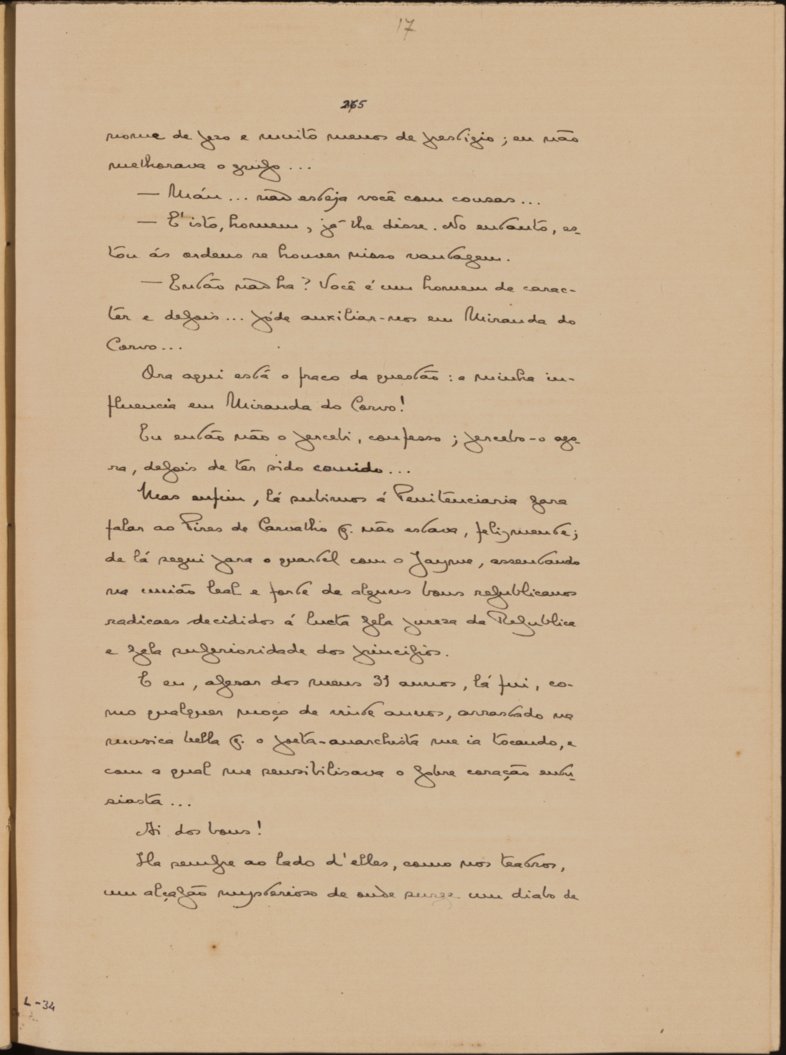 17
265
nome de pezo e muito menos de prestigio; eu não
melhorava o grupo...
— Máu... não esteja você com cousas...
— E' isto, homem, já lhe disse. No entanto, es-
tou ás ordens se houver nisso vantagem.
— Então não ha? Você é um homem de carac-
ter e depois... póde auxiliar-nos em Miranda do
Corvo...
Ora aqui está o fraco da questão: a minha in-
fluencia em Miranda do Corvo!
Eu então não o percebi, confesso; percebo-o ago-
ra, depois de ter sido comido...
Mas enfim, lá subimos á Penitenciaria para
falar ao Pires de Carvalho q. não estava, felizmente;
de lá segui para o quartel com o Jayme, assentando
na união leal e forte de alguns bons republicanos
radicaes decididos á lucta pela pureza da Republica
e pela superioridade dos principios.
E eu, apesar dos meus 31 annos, lá fui, co-
mo qualquer moço de vinte annos, arrastado na
musica bella q. o poeta-anarchista me ia tocando, e
com a qual me sensibilisava o pobre coração entu-
siasta...
Ai dos bons!
Ha sempre ao lado d'elles, como nos teatros,
um alçapão mysterioso de onde surge um diabo de
L-34